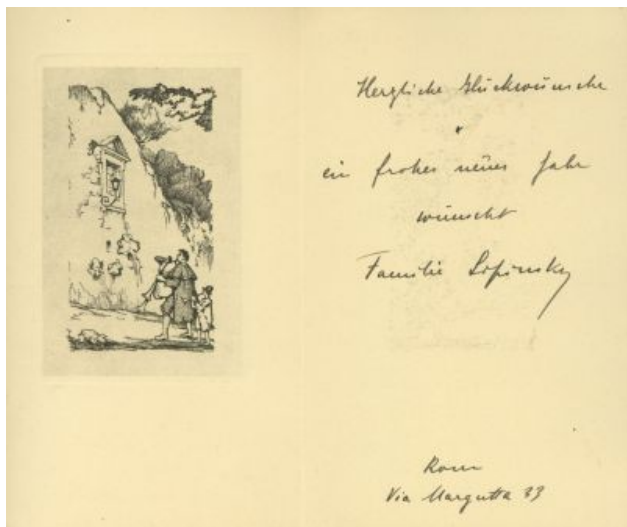 Herzliche Glückwünsche
ein frohes neues Jahr
wünscht
Familie Lipinsky
Rom
Via Margutta 33